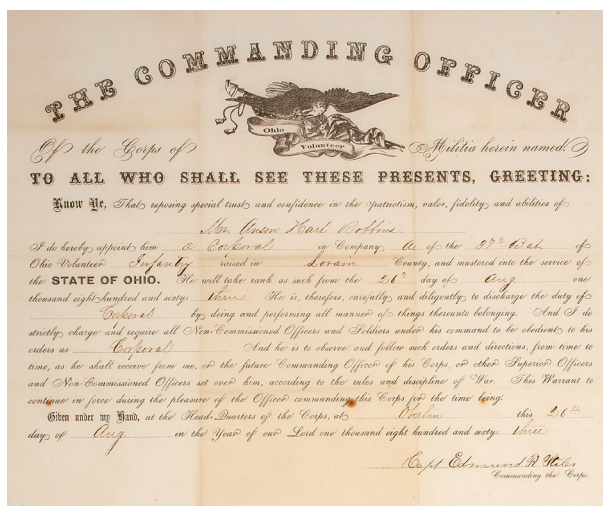 THE COMMANDING OFFICER
Ohio
Volunteer
Of the Corps of Militia herein named.
TO ALL WHO SHALL SEE THESE PRESENTS, GREETING:
Know Ye, That reposing special trust and confidence in the patriotism, valor, fidelity and abilities of
Anson Hart Robbins
I do hereby appoint him a Corporal in Company A of the 37th Bat of
Ohio Volunteer Infantry raised in Lorain County, and mustered into the service of
the STATE OF OHIO. He will take rank as such from the 26th day of Aug one
thousand eight hundred and sixty-three He is, therefore, carefully and diligently to discharge the duty of
Corporal by doing and performing all manner of things thereunto belonging. And I do
strictly charge and require all Non-Commissioned Officers and Soldiers under his command to be obedient to his
orders as Corporal And he is to observe and follow such orders and directions, from time to
time, as he shall receive from me, or the future Commanding Officer of his Corps, or other Superior Officers
and Non-Commissioned Officers set over him, according to the rules and discipline of War. This Warrant to
continue in force during the pleasure of the Officer commanding this Corps for the time being.
Given under my Hand, at the Head-Quarters of the Corps, at Oberlin this 26th
day of Aug in the Year of our Lord one thousand eight hundred and sixty-three
Capt Edmund R Stiles
Commanding the Corps.